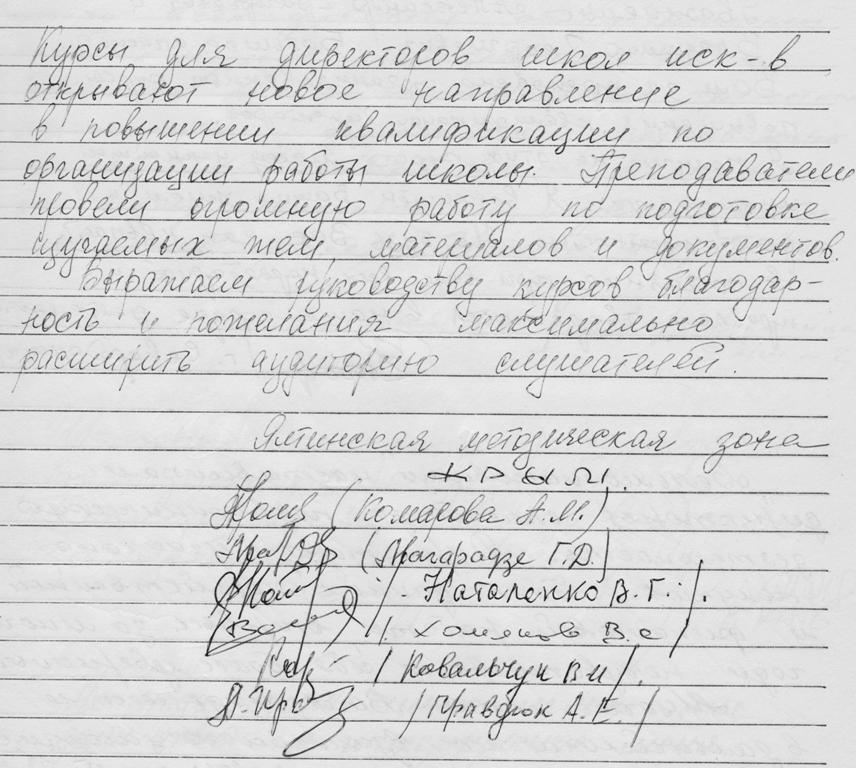 Курсы для директоров школ иск-в
открывают новое направление
в повышении квалификации по
организации работы школы. Преподаватели
провели огромную работу по подготовке
изучаемых тем, материалов и документов.
Выражаем руководству курсов благодар-
ность и пожелания максимально
расширить аудиторию слушателей.
Ялтинская методическая зона
КРЫМ
(Комарова А.М.)
Г.Д.)
/. Наталенко В.Г. /.
/. Хомяков В.С /
/ Ковальчук В.И /.
/ Правдюк А.Е. /